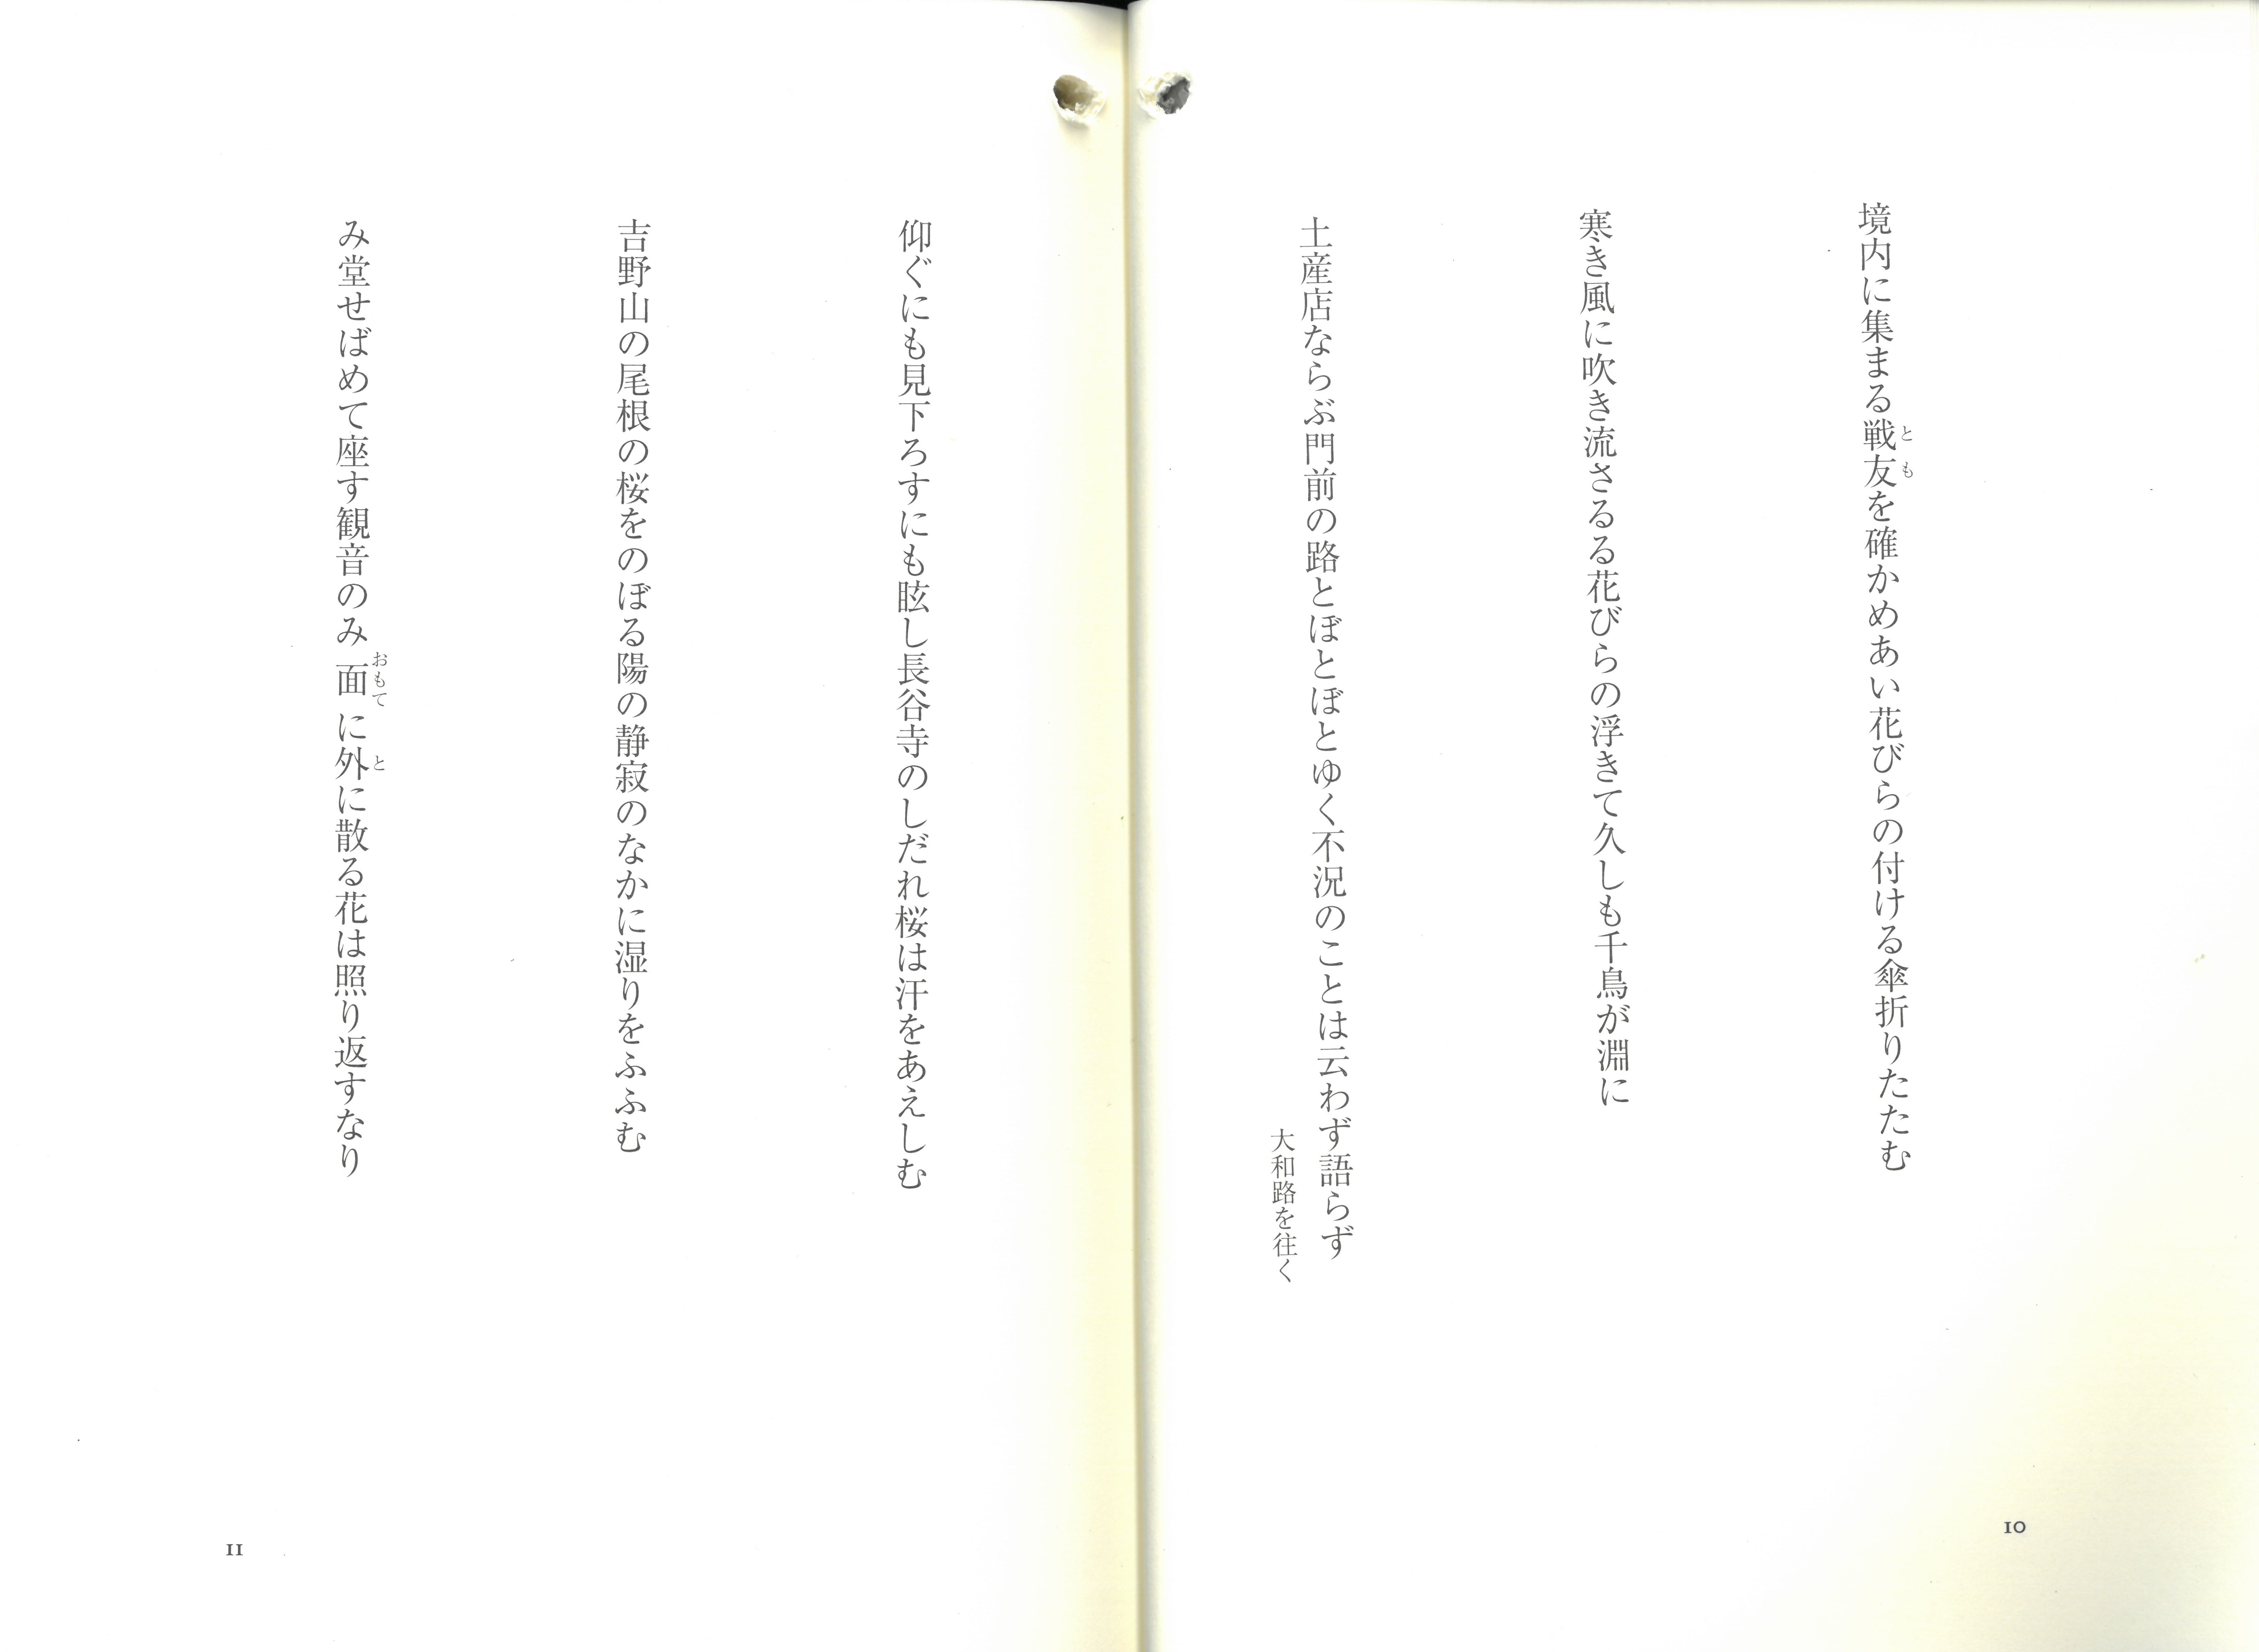 境内に集まる戦友を確かめあい花びらの付ける傘折りたたむ
とも
寒き風に吹き流さるる花びらの浮きて久しも千鳥が淵に
土産店ならぶ門前の路とぼとぼとゆく不況のことは云わず語らず
大和路を往く
10
仰ぐにも見下ろすにも眩し長谷寺のしだれ桜は汗をあえしむ
吉野山の尾根の桜をのぼる陽の静寂のなかに湿りをふふむ
み堂せばめて座す観音のみ面に外に散る花は照り返すなり
おもて
と
11